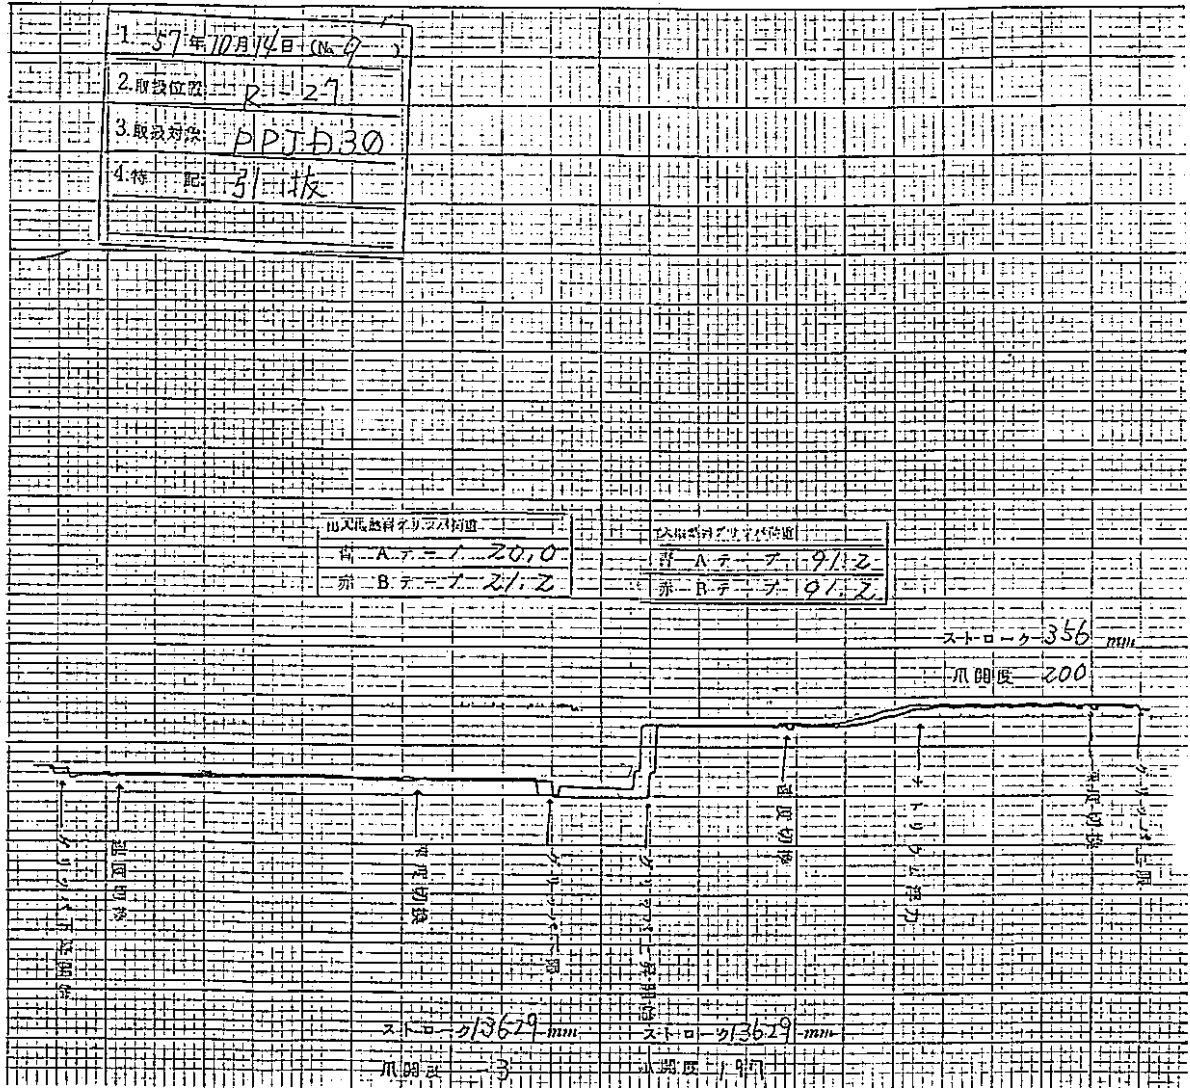 1. 57年10月14日 (No. 9 )
2.取扱位置 R-27
3.取扱対象 PPJD30
4.特 記 引抜
青 Aテープ 20.0
赤 Bテープ 21.2
青 Aテープ 91.2
赤 Bテープ 91.2
ストローク 356 mm
爪開度 200
グリッパ下降開始
速度切換
速度切換
グリッパ下限
グリッパ上昇開始
速度切換
ナトリウム浮力
速度切換
グリッパ上限
ストローク 13629 mm
ストローク 13629 mm
爪開度 -3
爪開度 197